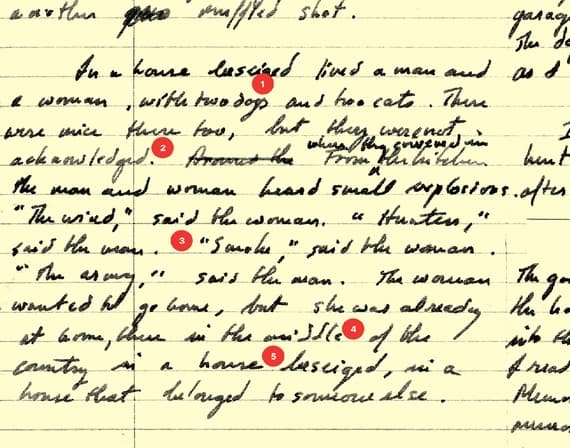 another muffled shot.
In a house beseiged lived a man and
1
a woman, with two dogs and two cats. There
were mice there too, but they were not
where they cowered in
acknowledged. 2 Around the From the kitchen
the man and woman heard small explosions.
"The wind," said the woman. "Hunters,"
said the man. 3 "Smoke," said the woman.
"The army," said the man. The woman
wanted to go home, but she was already
at home, there in the middle 4 of the
country in a house 5 beseiged, in a
house that belonged to someone else.
garag
as I
after
the ho
into th
I read